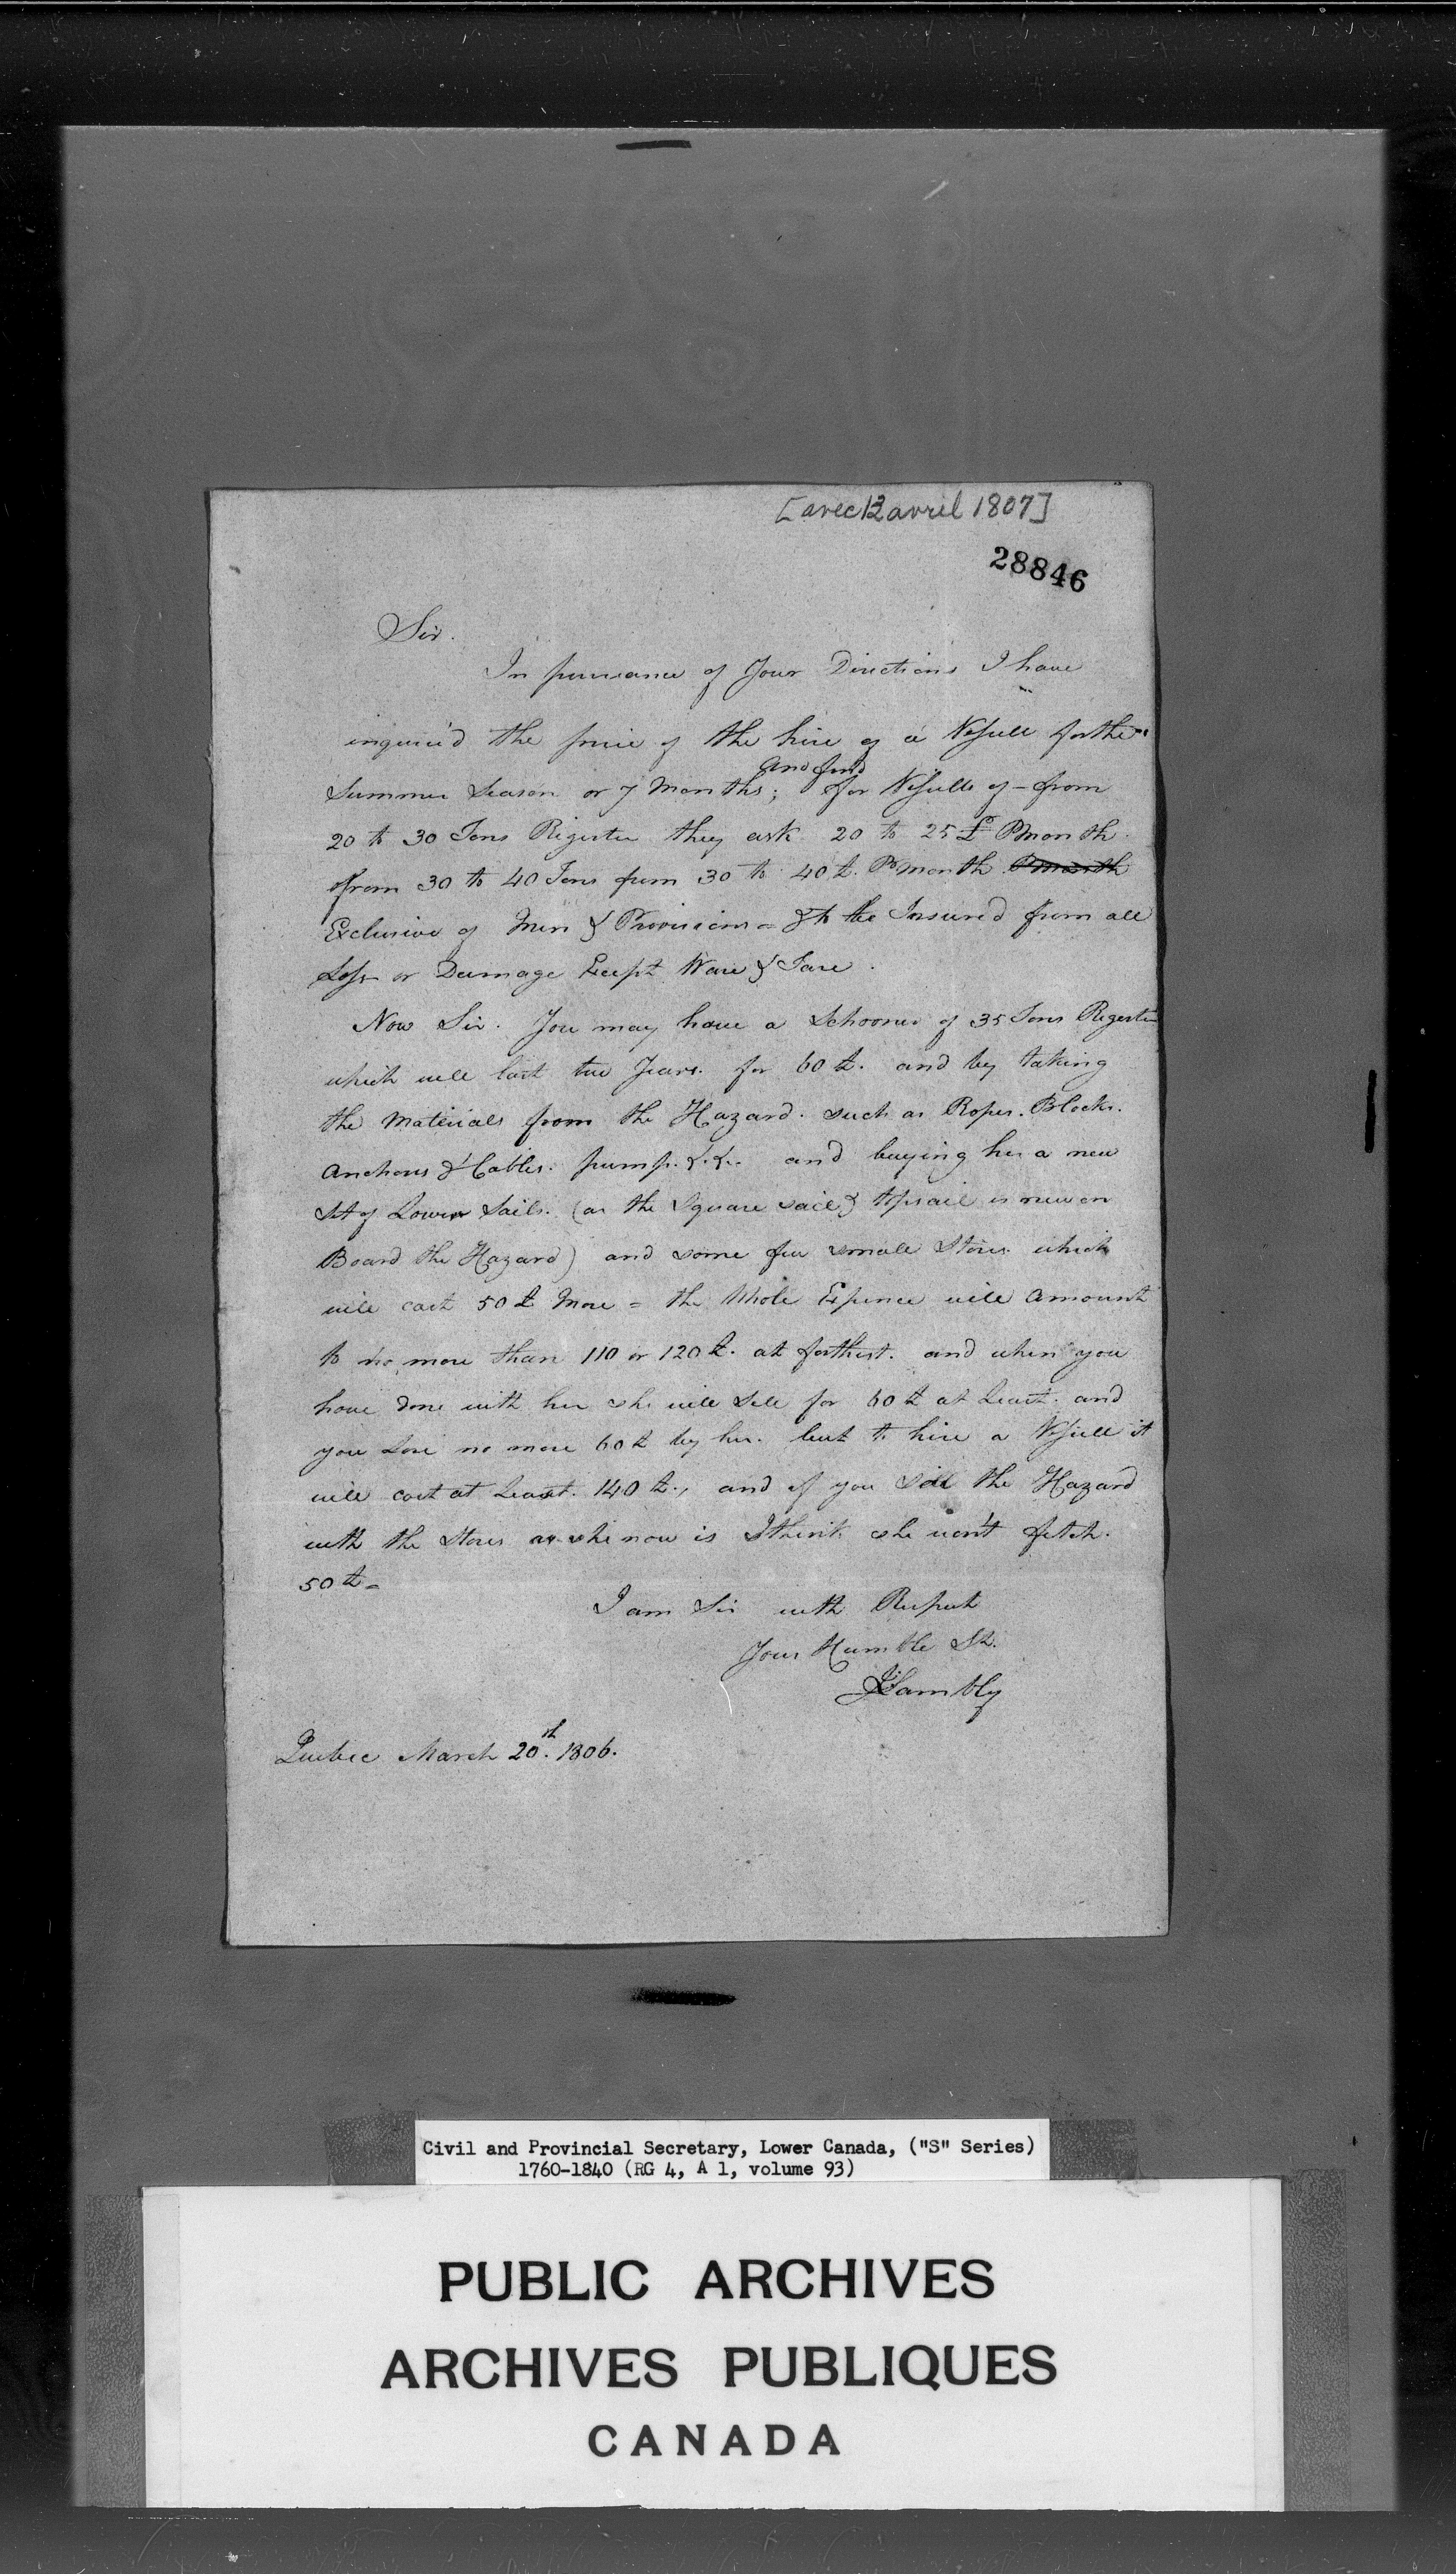 [avec 12 avril 1807]
28846
Sir.
In pursuance of Your Directions I have
inquired the price of the hire of a Vessell for the
and find
Summer Season or 7 Months; for Vessells of - from
20 to 30 Tons Register they ask 20 to 25 £ P month.
from 30 to 40 Tons from 30 to 40 £. P month P month
Exclusive of Men & Provisions = & to be Insured from all
Loss or Damage Except Ware & Tare.
Now Sir. You may have a Schooner of 35 Tons Register
which will last two Years. for 60 £. and by taking
the Materials from the Hazard. such as Ropes. Blocks.
Anchors & Cables. pump. &.&. and buying her a new
Set of Lower Sails. (as the Square sail & topsail is new on
Board the Hazard) and some few small Stores which
will cost 50 £ More = the Whole Expence will Amount
to no more than 110 or 120 £. at farthest. and when you
have done with her she will Sell for 60 £ at Least. and
you Lose no more 60 £ by her. but to hire a Vessell it
will cost at Least. 140 £., and if you Sell the Hazard
with the Stores as she now is I think she won't fetch.
50 £ =
I am Sir with Respect
Your Humble St.
J Lambly
Quebec March 20th. 1806.
Civil and Provincial Secretary, Lower Canada, ("S" Series)
1760-1840 (RG 4, A 1, volume 93)
PUBLIC ARCHIVES
ARCHIVES PUBLIQUES
CANADA